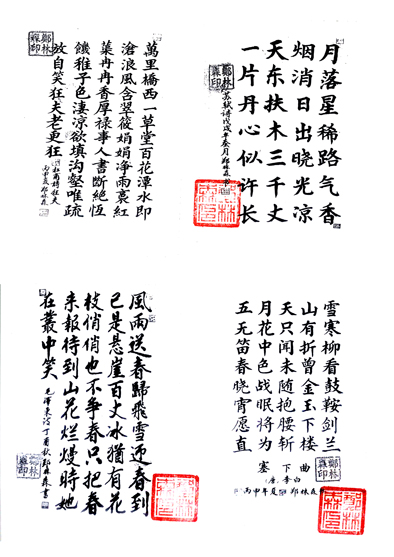 月落星稀路气香
烟消日出晓光凉
天东扶木三千丈
一片丹心似许长
萬里橋西一草堂百花潭水即
滄浪風含翠篠娟娟淨雨裛紅
蕖冉冉香厚禄事人書斷絕恆
饑稚子色淒涼欲填溝壑唯疏
放自笑狂夫老更狂
杜甫詩狂夫
丙申夏郑林森
五月天山雪
无花只有寒
笛中闻折柳
春色未曾看
晓战随金鼓
宵眠抱玉鞍
愿将腰下剑
直为斩楼兰
塞下曲
唐 李白
丙申年夏郑林森
風雨送春歸飛雪迎春到
已是悬崖百丈冰猶有花
枝俏俏也不争春只把春
来報待到山花烂熳時她
在叢中笑
毛澤东诗丁酉秋郑林森書
鄭林森印